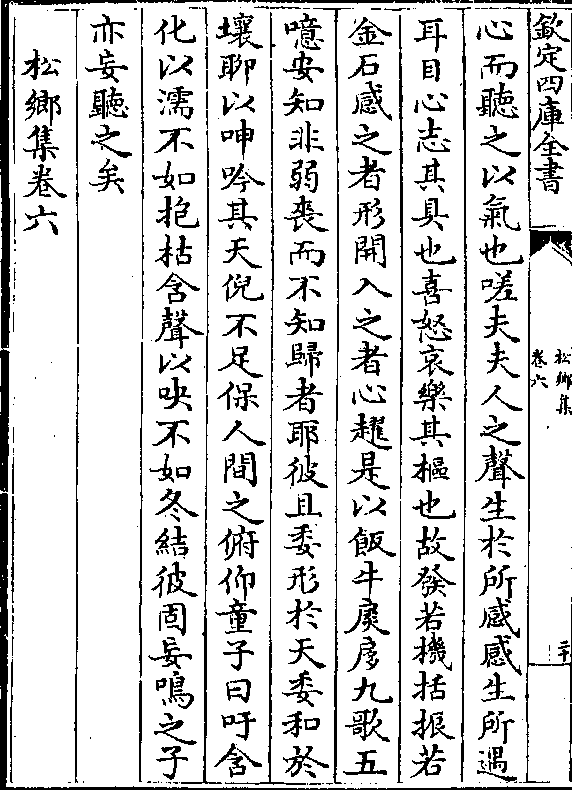 欽定四庫全書
松鄉集
卷六
心而聽之以氣也嗟夫夫人之聲生於所感感生所遇
耳目心志其具也喜怒哀樂其樞也故發若機括振若
金石感之者形開入之者心趯是以飯牛扊扅九歌五
噫安知非弱喪而不知歸者耶彼且委形於天委和於
壤聊以呻吟其天倪不足保人間之俯仰童子曰吁含
化以濡不如抱枯含聲以吷不如冬結彼固妄鳴之子
亦妄聽之矣
松鄉集卷六